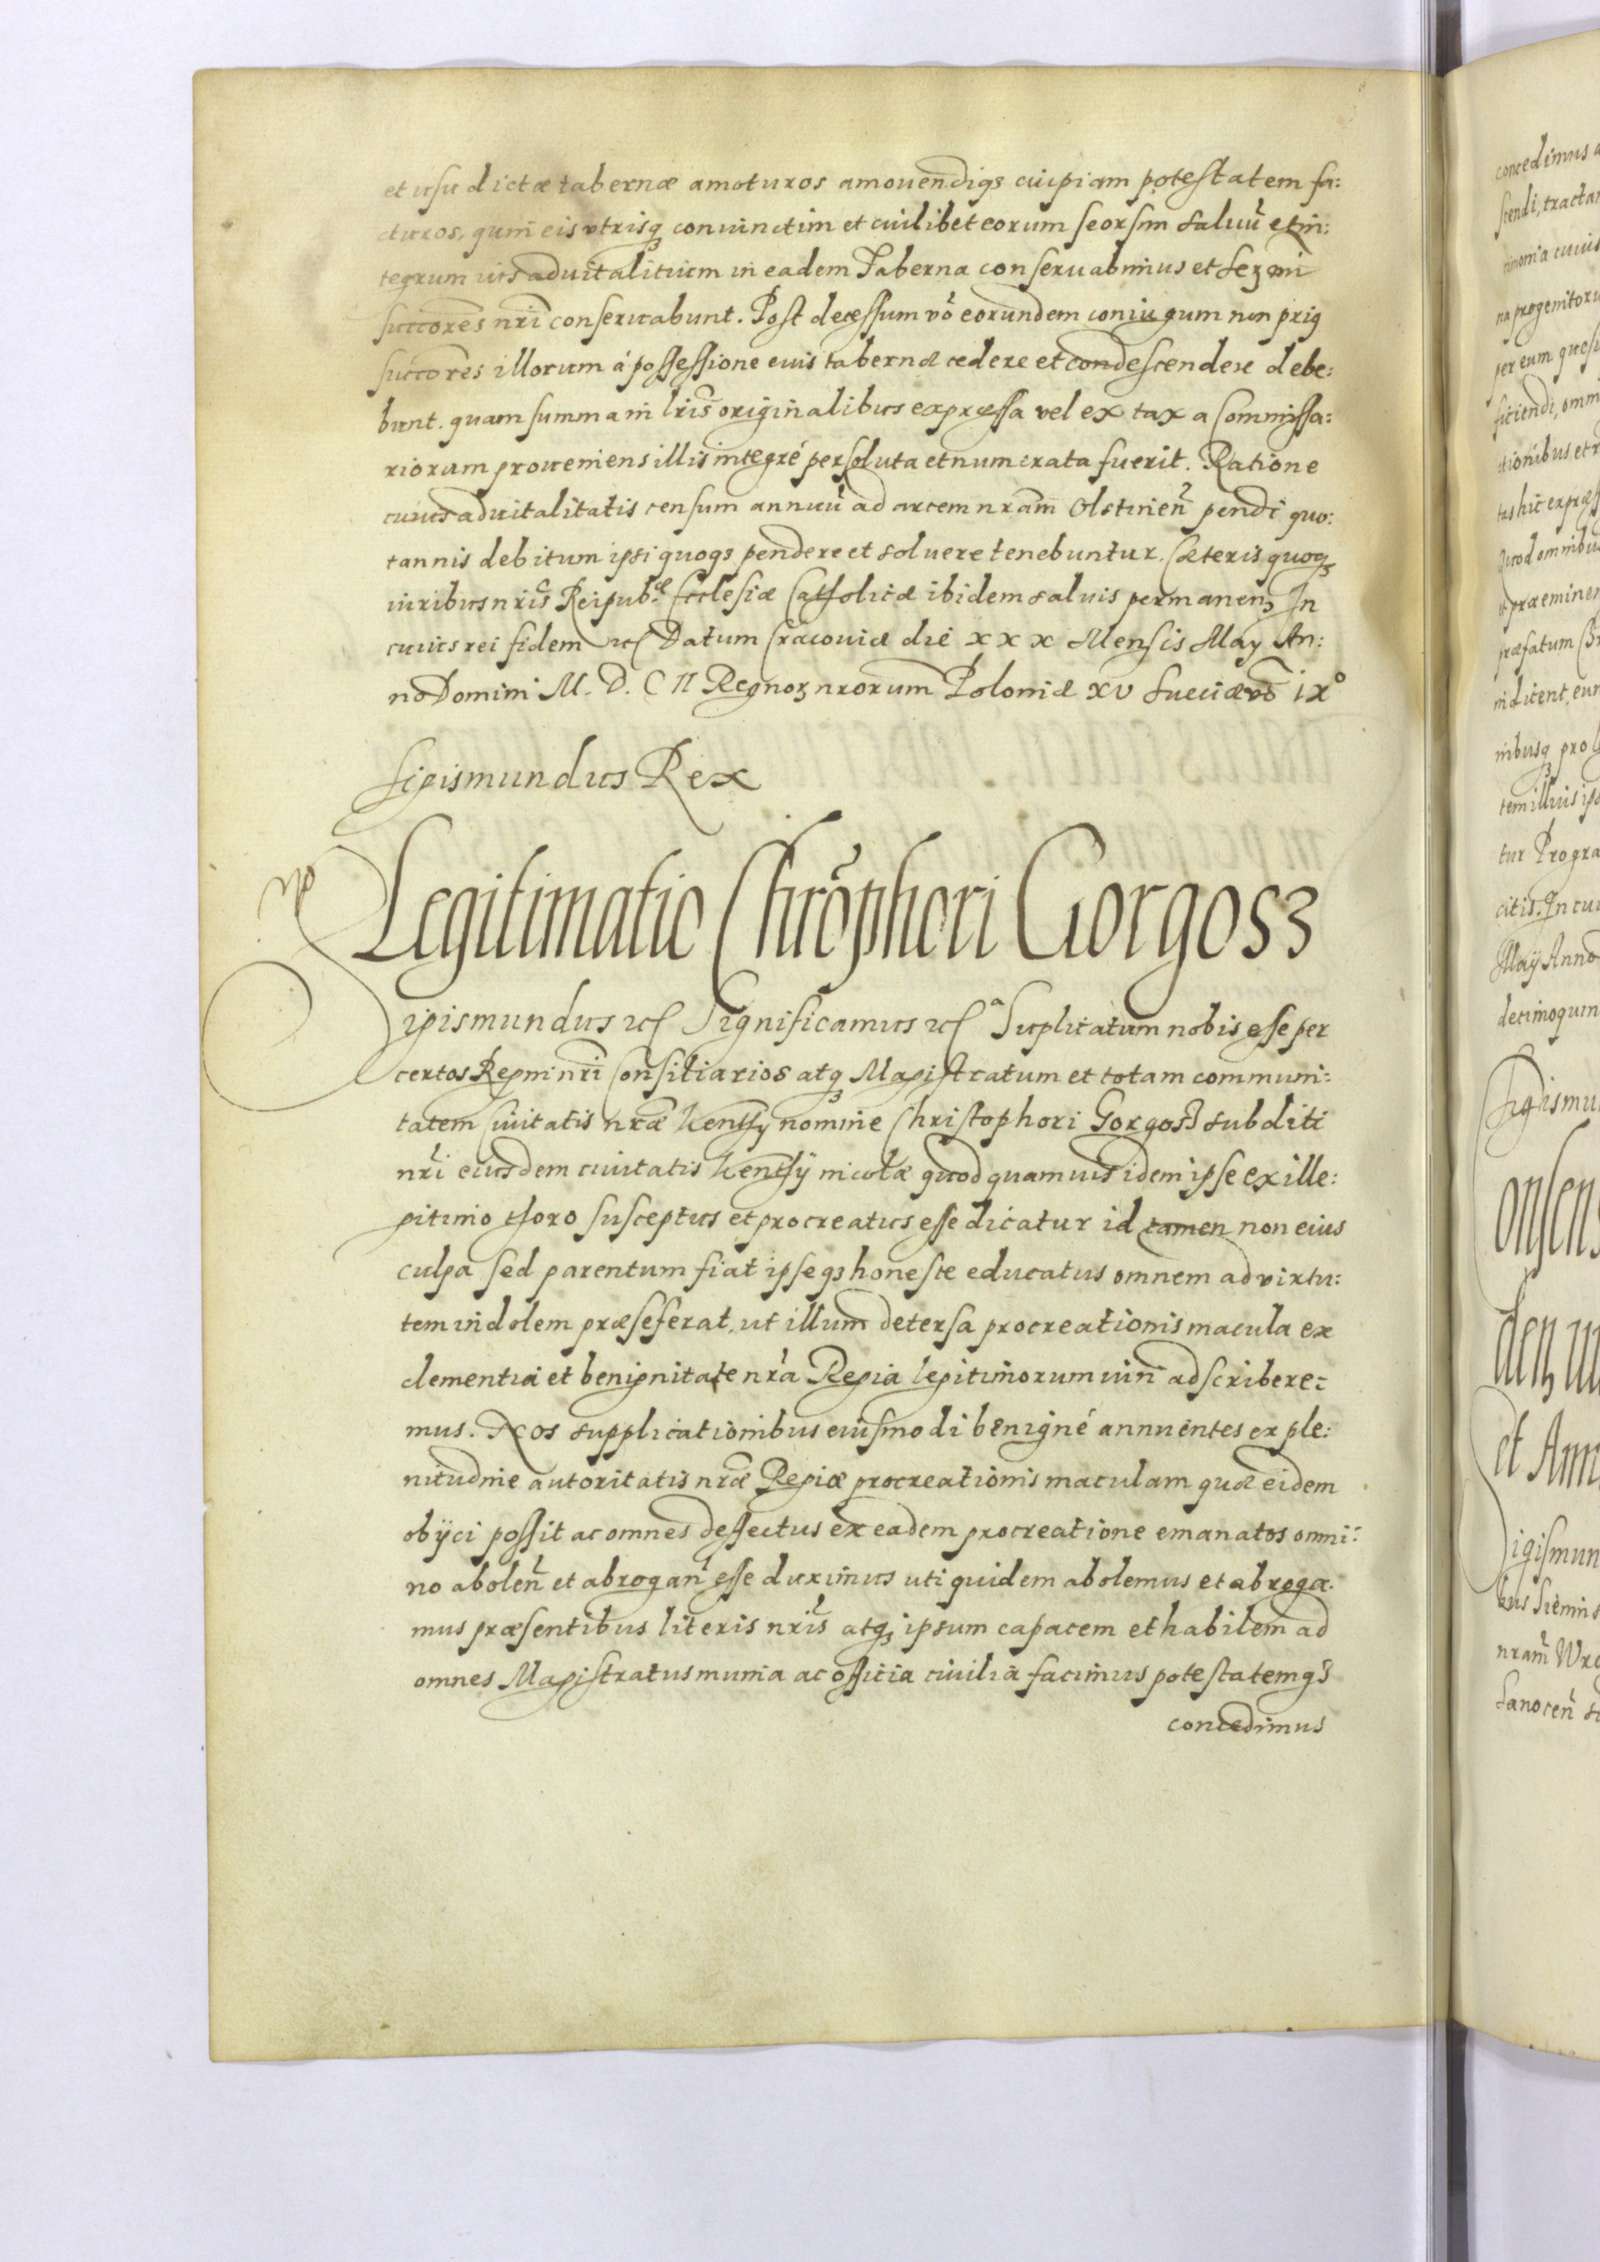 et usu dictæ tabernæ amoturos amovendiqȝ cuipiam potestatem fa:
cturos, quin eis utrisqȝ coniunctim et cuilibet eorum seorsim salvũ et in:
tegrum ius advitalitium in eadem Taberna conservabimus et Serȝmi
succores nri conservabunt. Post decessum vò eorundem coniugum non priq
succores illorum á possessione euis tabernæ cedere et condescendere debe:
bunt. quam summa in lris originalibus expressa vel ex taxa Commissa:
riorum proveniens illis integré persoluta et numerata fuerit. Ratione
cuius advitalitatis censum annuũ ad arcem nram Olstinen̄ pendi quo:
tannis debitum ipsi quoqȝ pendere et solvere tenebuntur. Cæteris quoqȝ
iuribus nris Reipubᶜᵉ Ecclesiæ Catholicæ ibidem salvis permanenȝ In
cuius rei fidem ɾc̃ Datum Cracoviæ die xxx Mensis May An:
no Domini M. D. C II Regnoȝ nrorum Poloniæ xv Sueciæ vō ixº
Sigismundus Rex
Legitimatio Chrõphori Gorgosȝ
Sigismundus ɾc̃ Significamus ɾc̃ Suplicatum nobis esse per
certos Regni nri Consiliarios atqȝ Magistratum et totam communi:
tatem Civitatis nræ Kensȝy nomine Christophori Gorgosȝ subditi
nri eiusdem civitatis Kensȝÿ incolæ quod quamvis idem ipse ex ille:
gitimo thoro susceptus et procreatus esse dicatur id tamen non eius
culpa sed parentum fiat ipseqȝ honeste educatus omnem ad virtu:
tem indolem præseferat, ut illum detersa procreationis macula ex
clementia et benignitate nra Regia legitimorum iuri adscribere:
mus. Nos supplicationibus eiusmodi benigné annuentes ex ple:
nitudine autoritatis nræ Regiæ procreationis maculam quæ eidem
obÿci possit ac omnes deffectus ex eadem procreatione emanatos omni:
no abolen̄ et abrogan̄ esse duximus uti quidem abolemus et abroga:
mus præsentibus literis nris atqȝ ipsum capacem et habilem ad
omnes Magistratus munia ac officia civilia facimus potestatemqȝ
concedimus